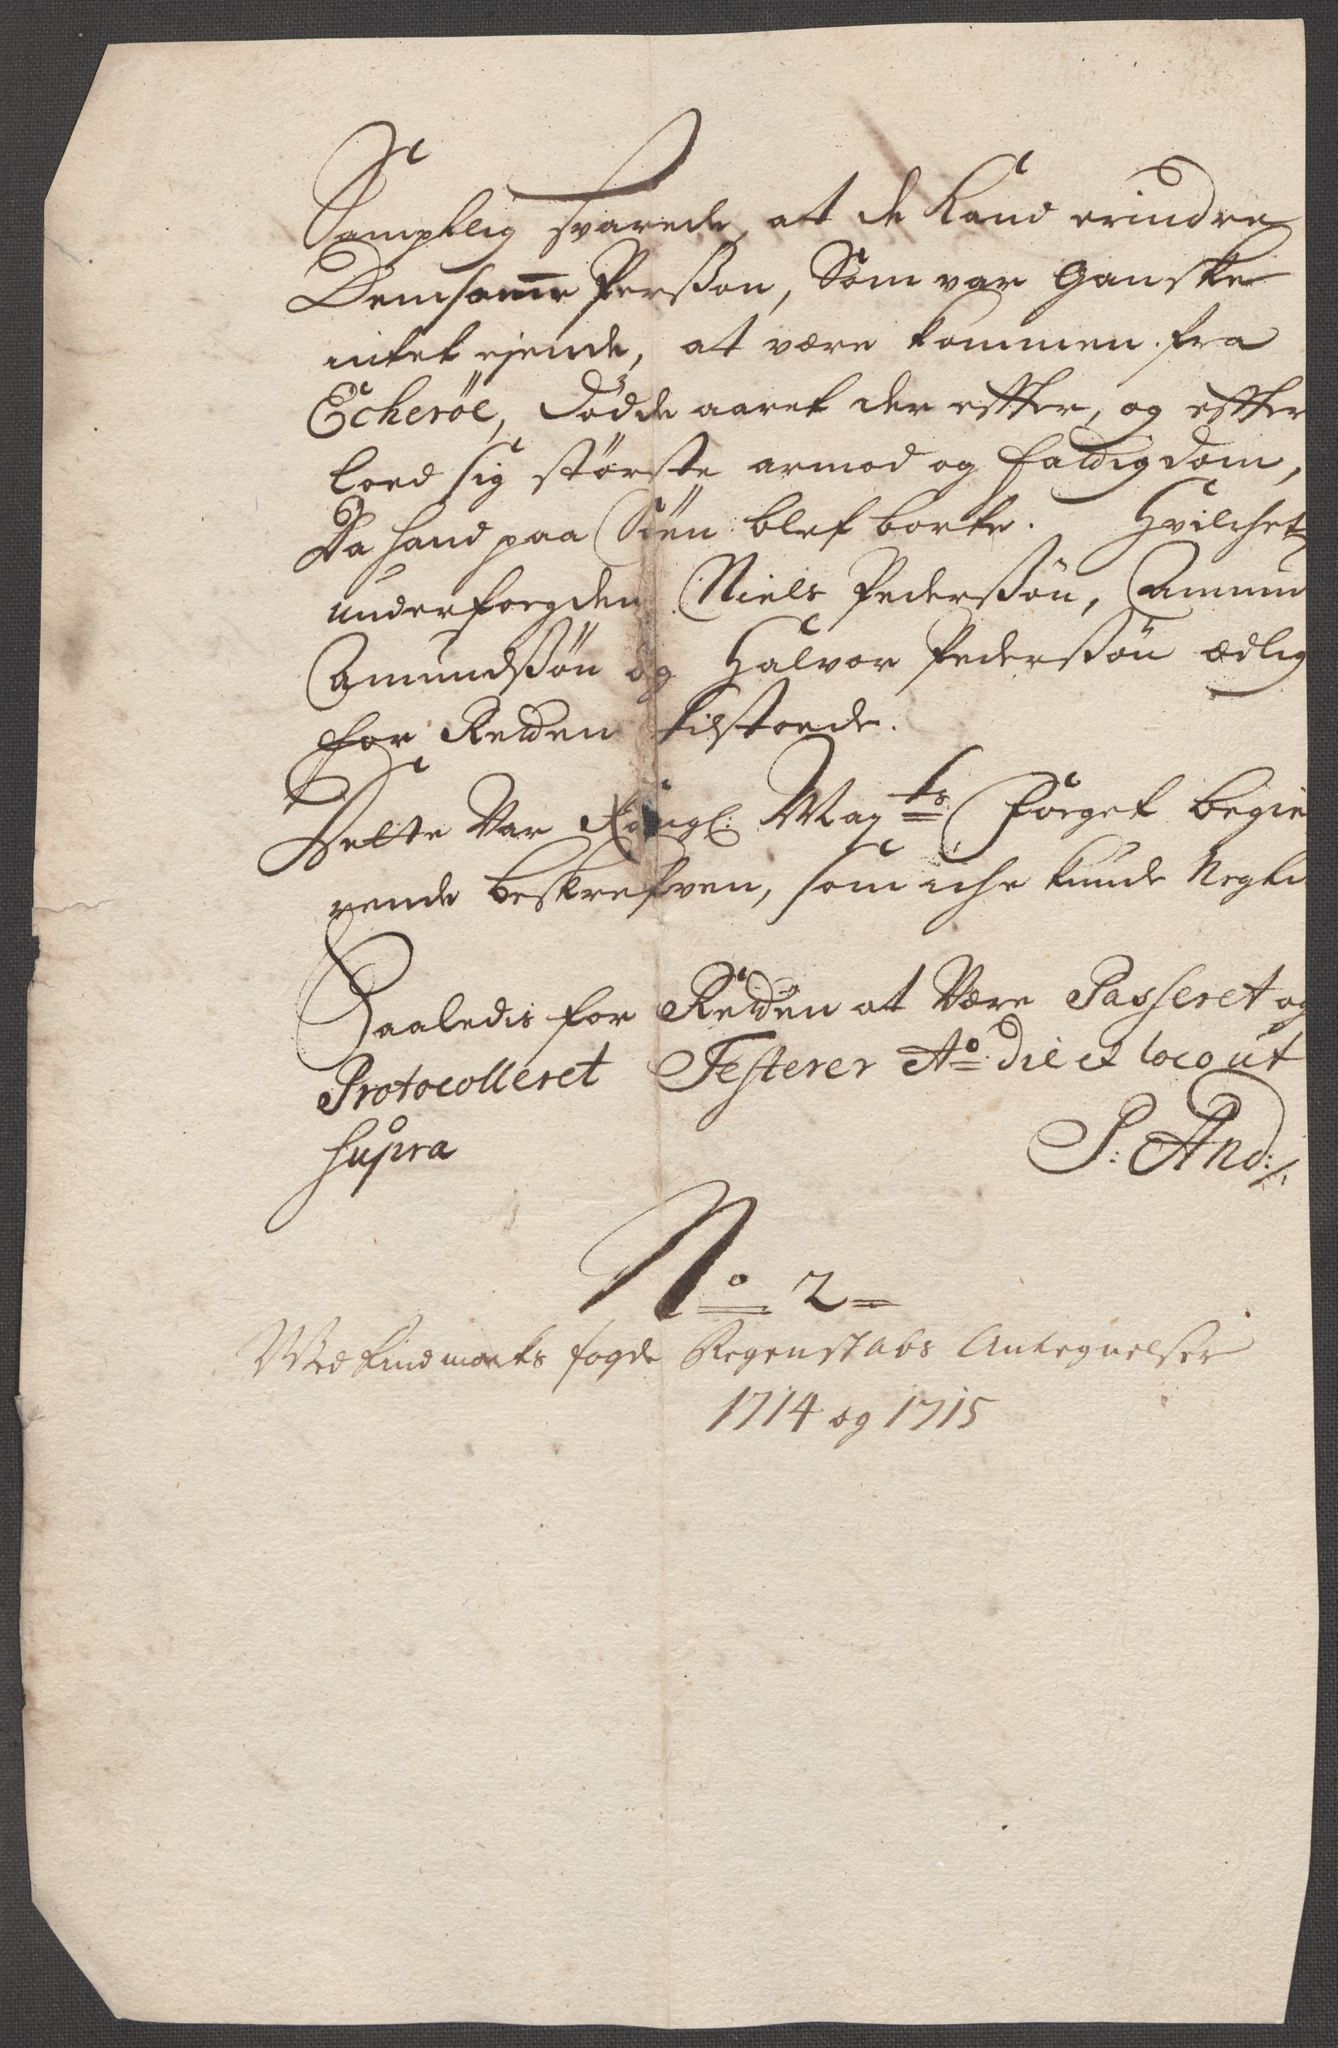 Samptlig svarede, at de Kand erindre
Demsamme Persson, Som var Ganske
intet ejende, at være kommen fra
Echerøe, Døde aaret der effter, og effter
loed sig største armod og fattigdom,
Da hand paa Siøn blef borte. Hvilchet
underfogden Niels Pederssøn, Amun
Amundssøn og Halvor Pederssøn ædlig
for Retten tilstoede.
Dette Var Kongl: Mayts Foget begie
rende beskrefven, som iche kunde Negte
Saaledis for Retten at Være Passeret og
Protocolleret Testerer Ao die et loco ut
supra
S: And:
No 2
Ved Findmarks fogde Regenskabs Antegnelser
1714 og 1715